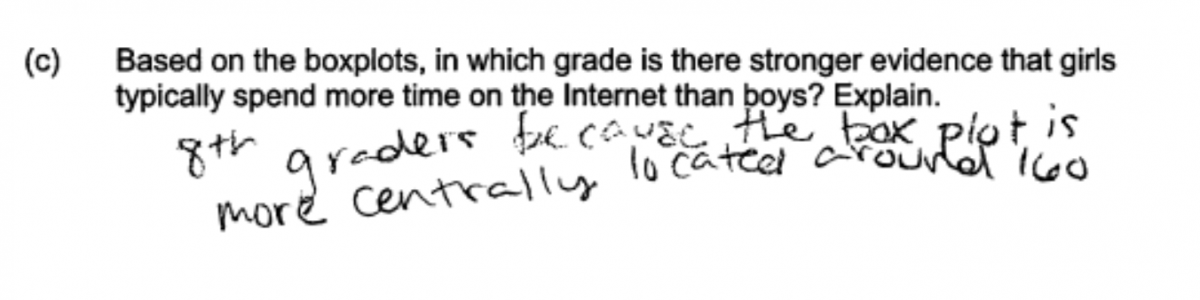 (c) Based on the boxplots, in which grade is there stronger evidence that girls
typically spend more time on the Internet than boys? Explain.
8th graders because the box plot is
more centrally located around 160